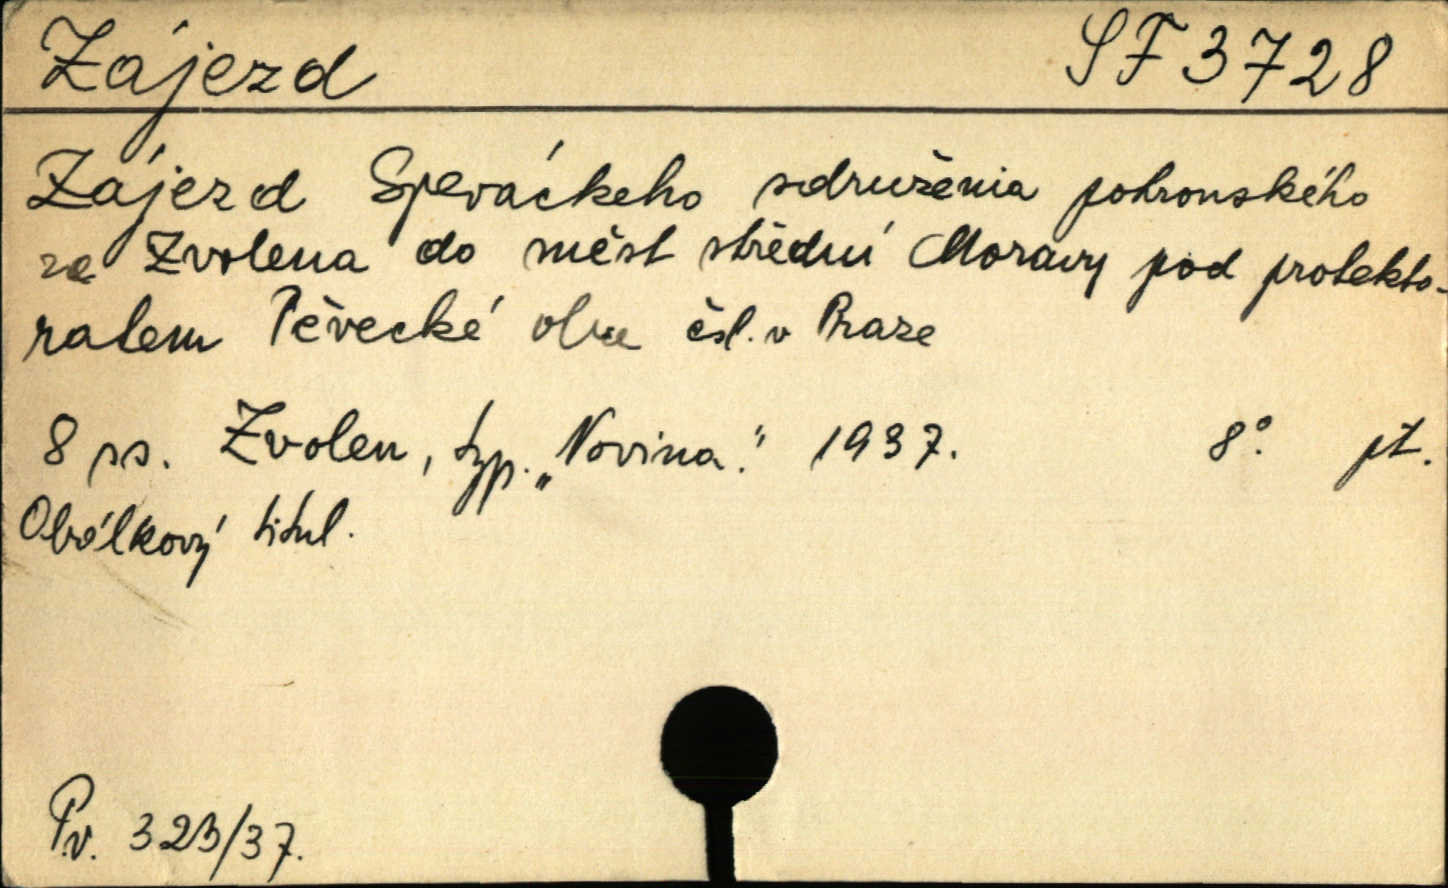 Zájezd SF 3728
Zájezd Speváckeho sdruženia pohronského
ze Zvolena do měst střední Moravy pod protekto-
ratem Pěvecké obce čsl. v Praze
8 ss. Zvolen, typ. „Novina." 1937. 8° pt.
Obálkový titul.
Pv. 323/37.